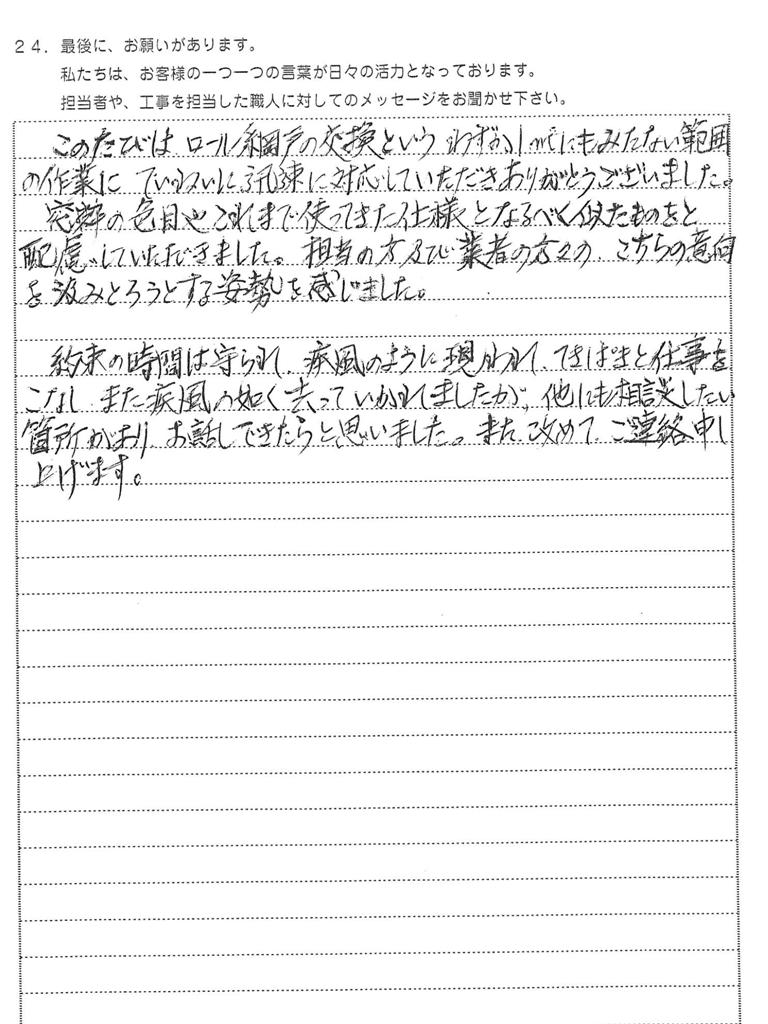 24. 最後に、お願いがあります。
私たちは、お客様の一つ一つの言葉が日々の活力となっております。
担当者や、工事を担当した職人に対してのメッセージをお聞かせ下さい。
このたびは ロール網戸の交換という わずか にもみたない範囲
の作業に ていねいに、迅速に対応していただきありがとうございました。
窓枠の色目や これまで使ってきた仕様となるべく似たものをと
配慮していただきました。担当の方及び業者の方々の、こちらの意向
を汲みとろうとする姿勢を感じました。
約束の時間は守られて、疾風のように現われて、てきぱきと仕事を
こなし また疾風の如く去っていかれてましたが、他にも相談したい
箇所があり お話しできたらと思いました。また改めて ご連絡申し
上げます。